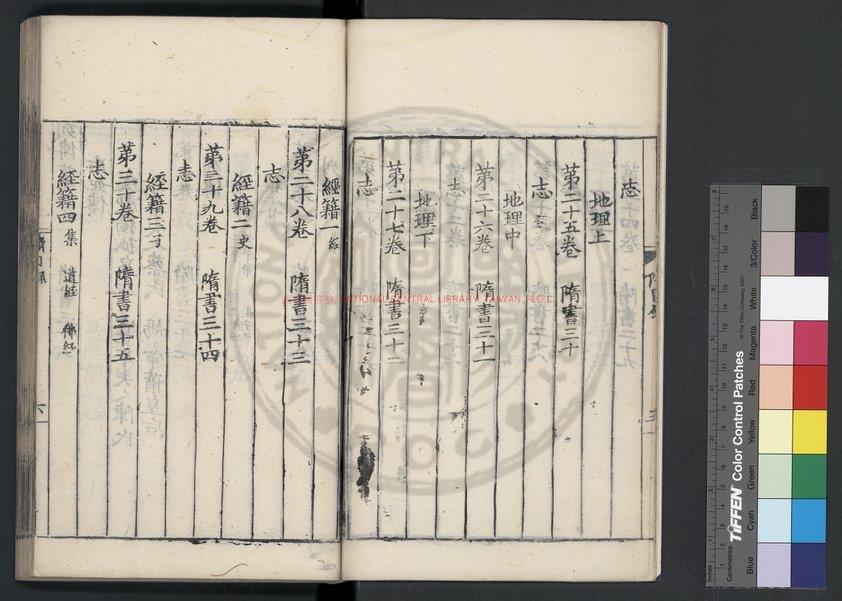 志
地理上
第二十五卷 隋書三十
志
地理中
第二十六卷 隋書三十一
志
地理下
第二十七卷 隋書三十二
志
經籍一 經
第二十八卷 隋書三十三
志
經籍二 史
第二十九卷 隋書三十四
志
經籍三 子
第三十卷 隋書三十五
志
經籍四 集 道經 佛經
六
NATIONAL CENTRAL LIBRARY, TAIWAN, R.O.C
TIFFEN Color Control Patches
© The Tiffen Company, 2007
Inches
Centimetres
Blue
Cyan
Green
Yellow
Red
Magenta
White
3/Color
Black